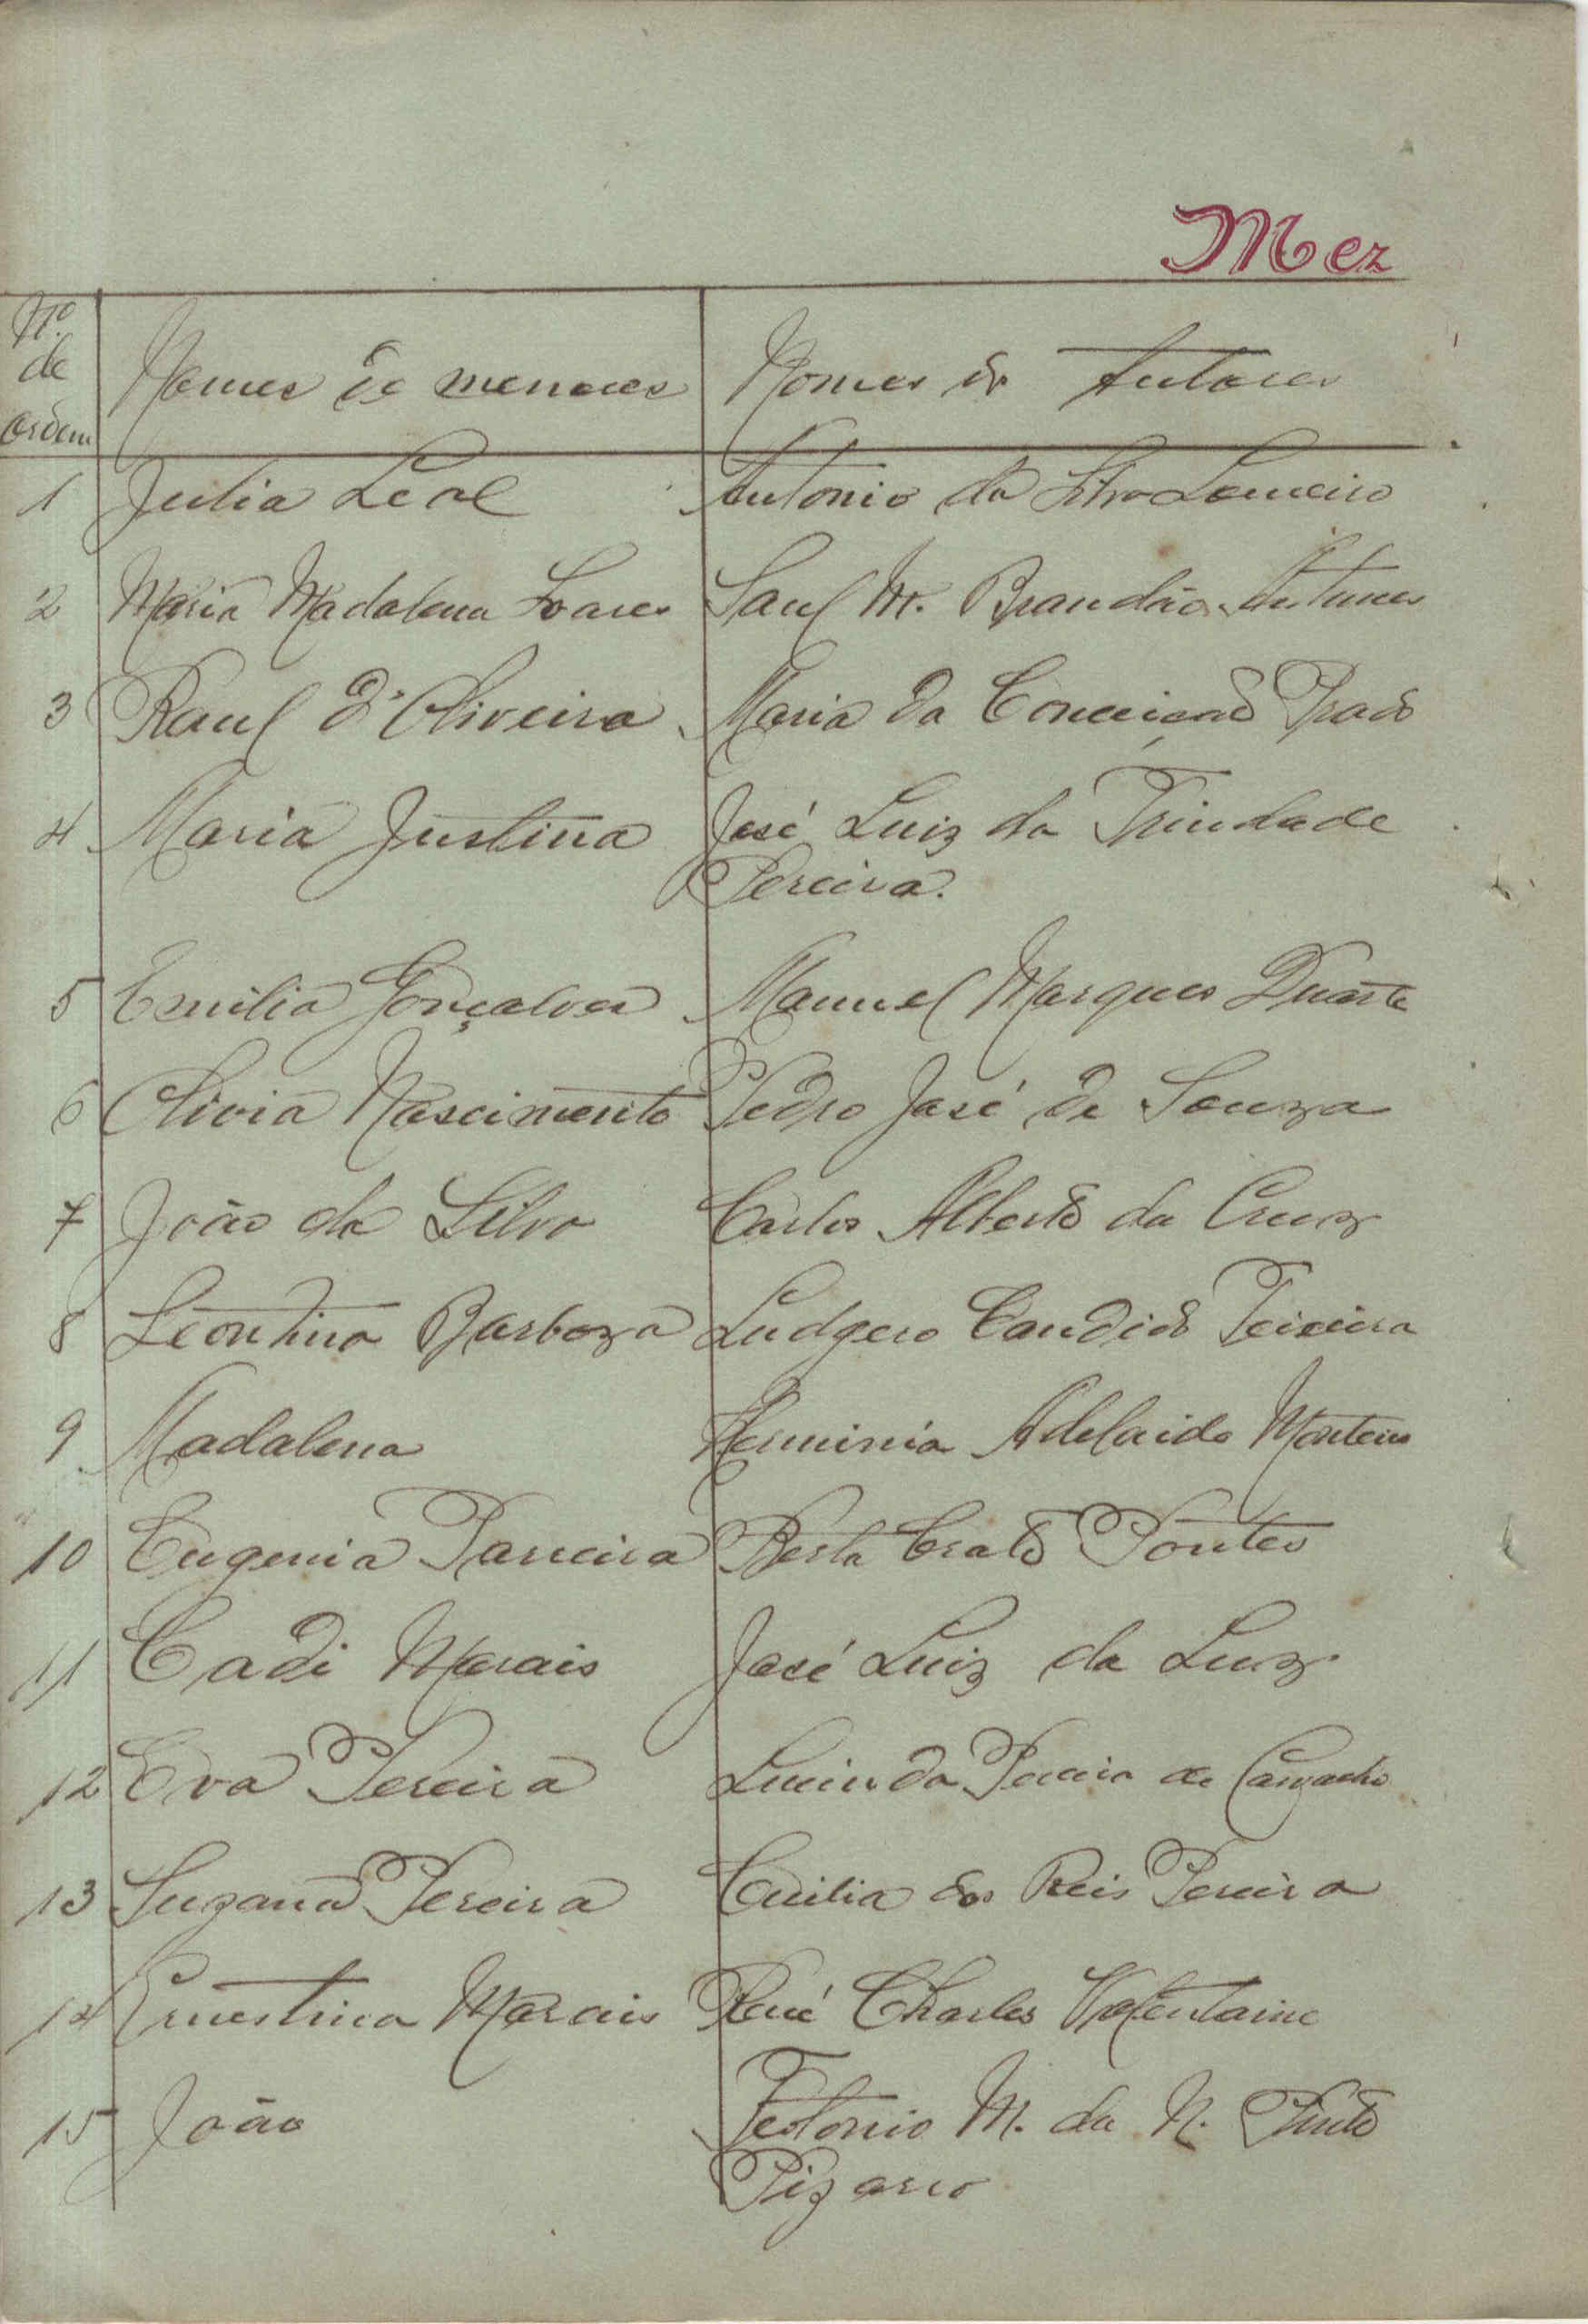 Mez
Nº
de
ordem
Nomes de menores Nomes de Tutores
1 Julia Leal Antonio da Silva Loureiro
2 Maria Madalena Soares Saul M. Brandão Antunes
3 Raul d'Oliveira Maria da Conceição Prado
4 Maria Justina José Luiz da Trindade
Pereira.
5 Emilia Gonçalves Manuel Marques Duarte
6 Olivia Nascimento Pedro José de Souza
7 João da Silva Carlos Alberto da Cruz
8 Leontina Barboza Ludgero Candido Teixeira
9 Madalena Herminia Adelaide Monteiro
10 Eugenia Parreira Berta Crato Pontes
11 Cadi Morais José Luiz da Luz
12 Eva Pereira Lucinda Pereira de
13 Suzana Pereira Cecilia dos Reis Pereira
14 Ernestina Morais René Charles Valentaine
15 João Teotonio M. da N. Pinto
Pizarro